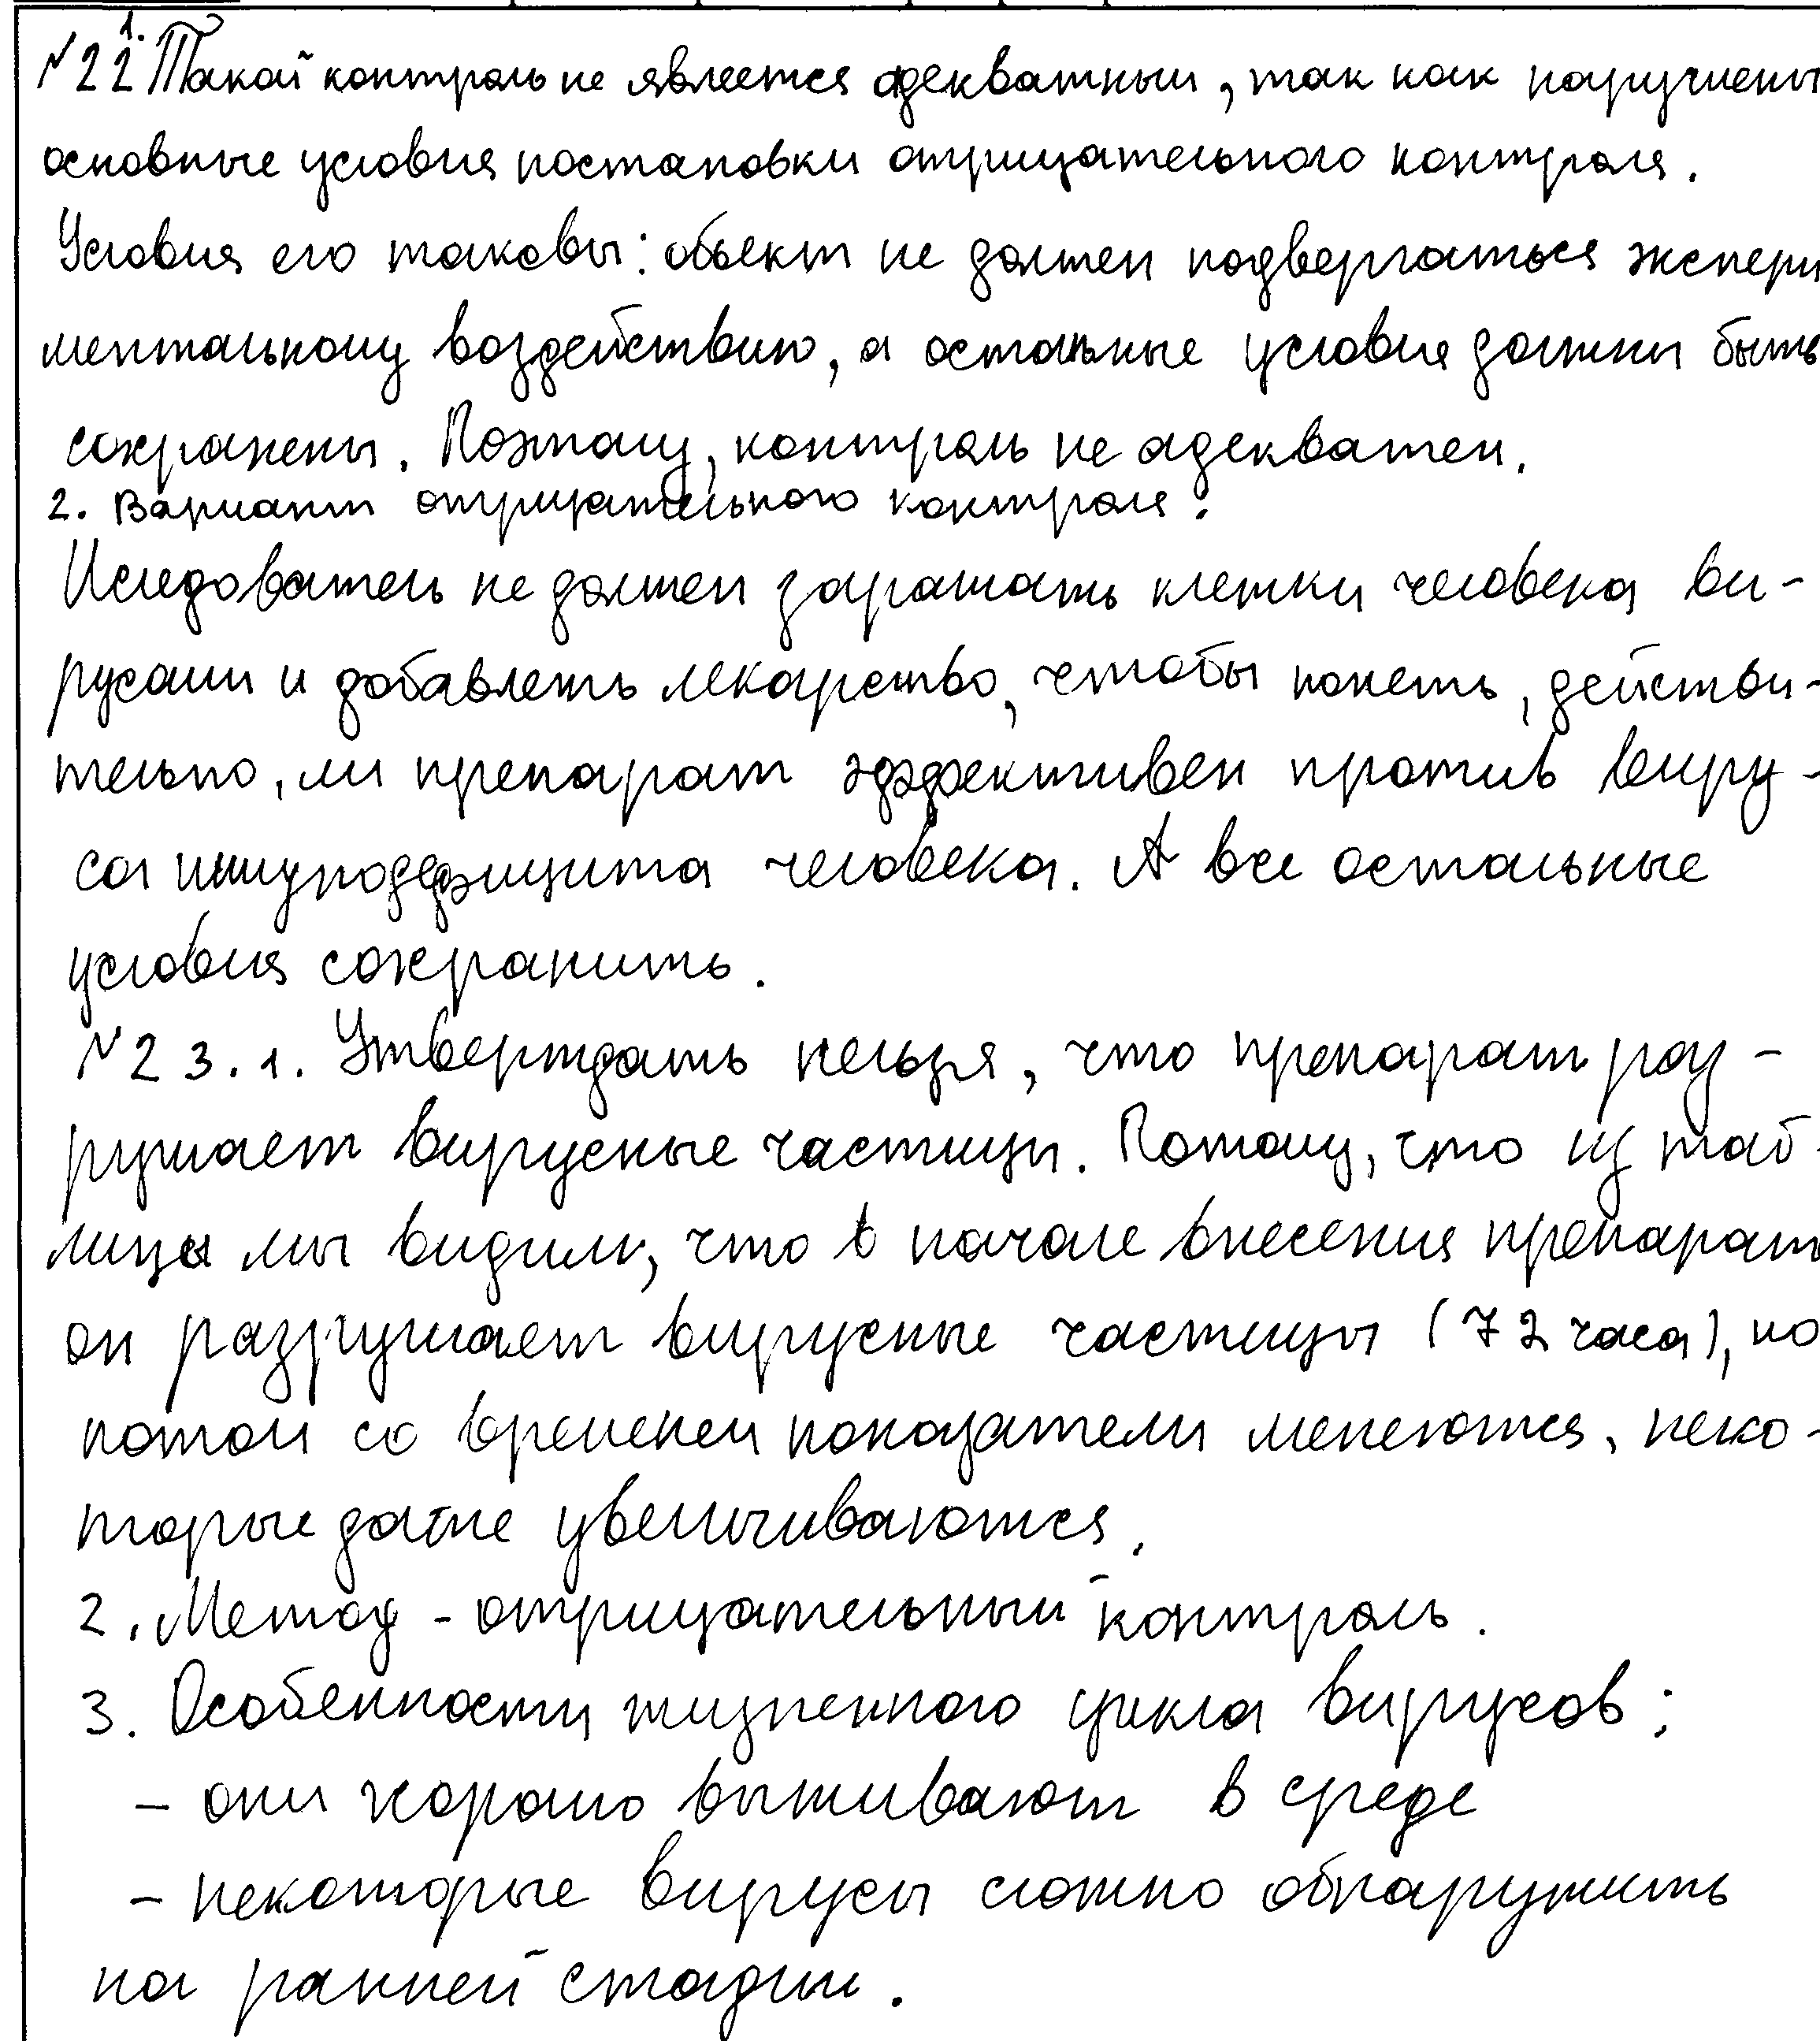 №22 1. Такой контроль не является адекватным, так как нарушены
основные условия постановки отрицательного контроля.
Условия его таковы: объект не должен подвергаться экспери
ментальному воздействию, а остальные условия должны быть
сохранены. Поэтому, контроль не адекватен.
2. Вариант отрицательного контроля:
Иследователь не должен заражать клетки человека ви-
русами и добавлять лекарство, чтобы понять, действи-
тельно, ли препарат эффективен против виру-
са иммунодефицита человека. А все остальные
условия сохранить.
№23.1. Утверждать нельзя, что препарат раз-
рушает вирусные частицы. Потому, что из таб-
лицы мы видим, что в начале внесения препарат
он разрушает вирусные частицы (72 часа), но
потом со временем показатели меняются, неко-
торые даже увеличиваются.
2. Метод - отрицательный контроль.
3. Особенности жизненного цикла вирусов:
- они хорошо выживают в среде
- некоторые вирусы сложно обнаружить
на ранней стадии.